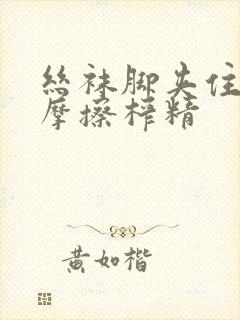 丝袜脚夹住
摩擦榨精
黄如楷